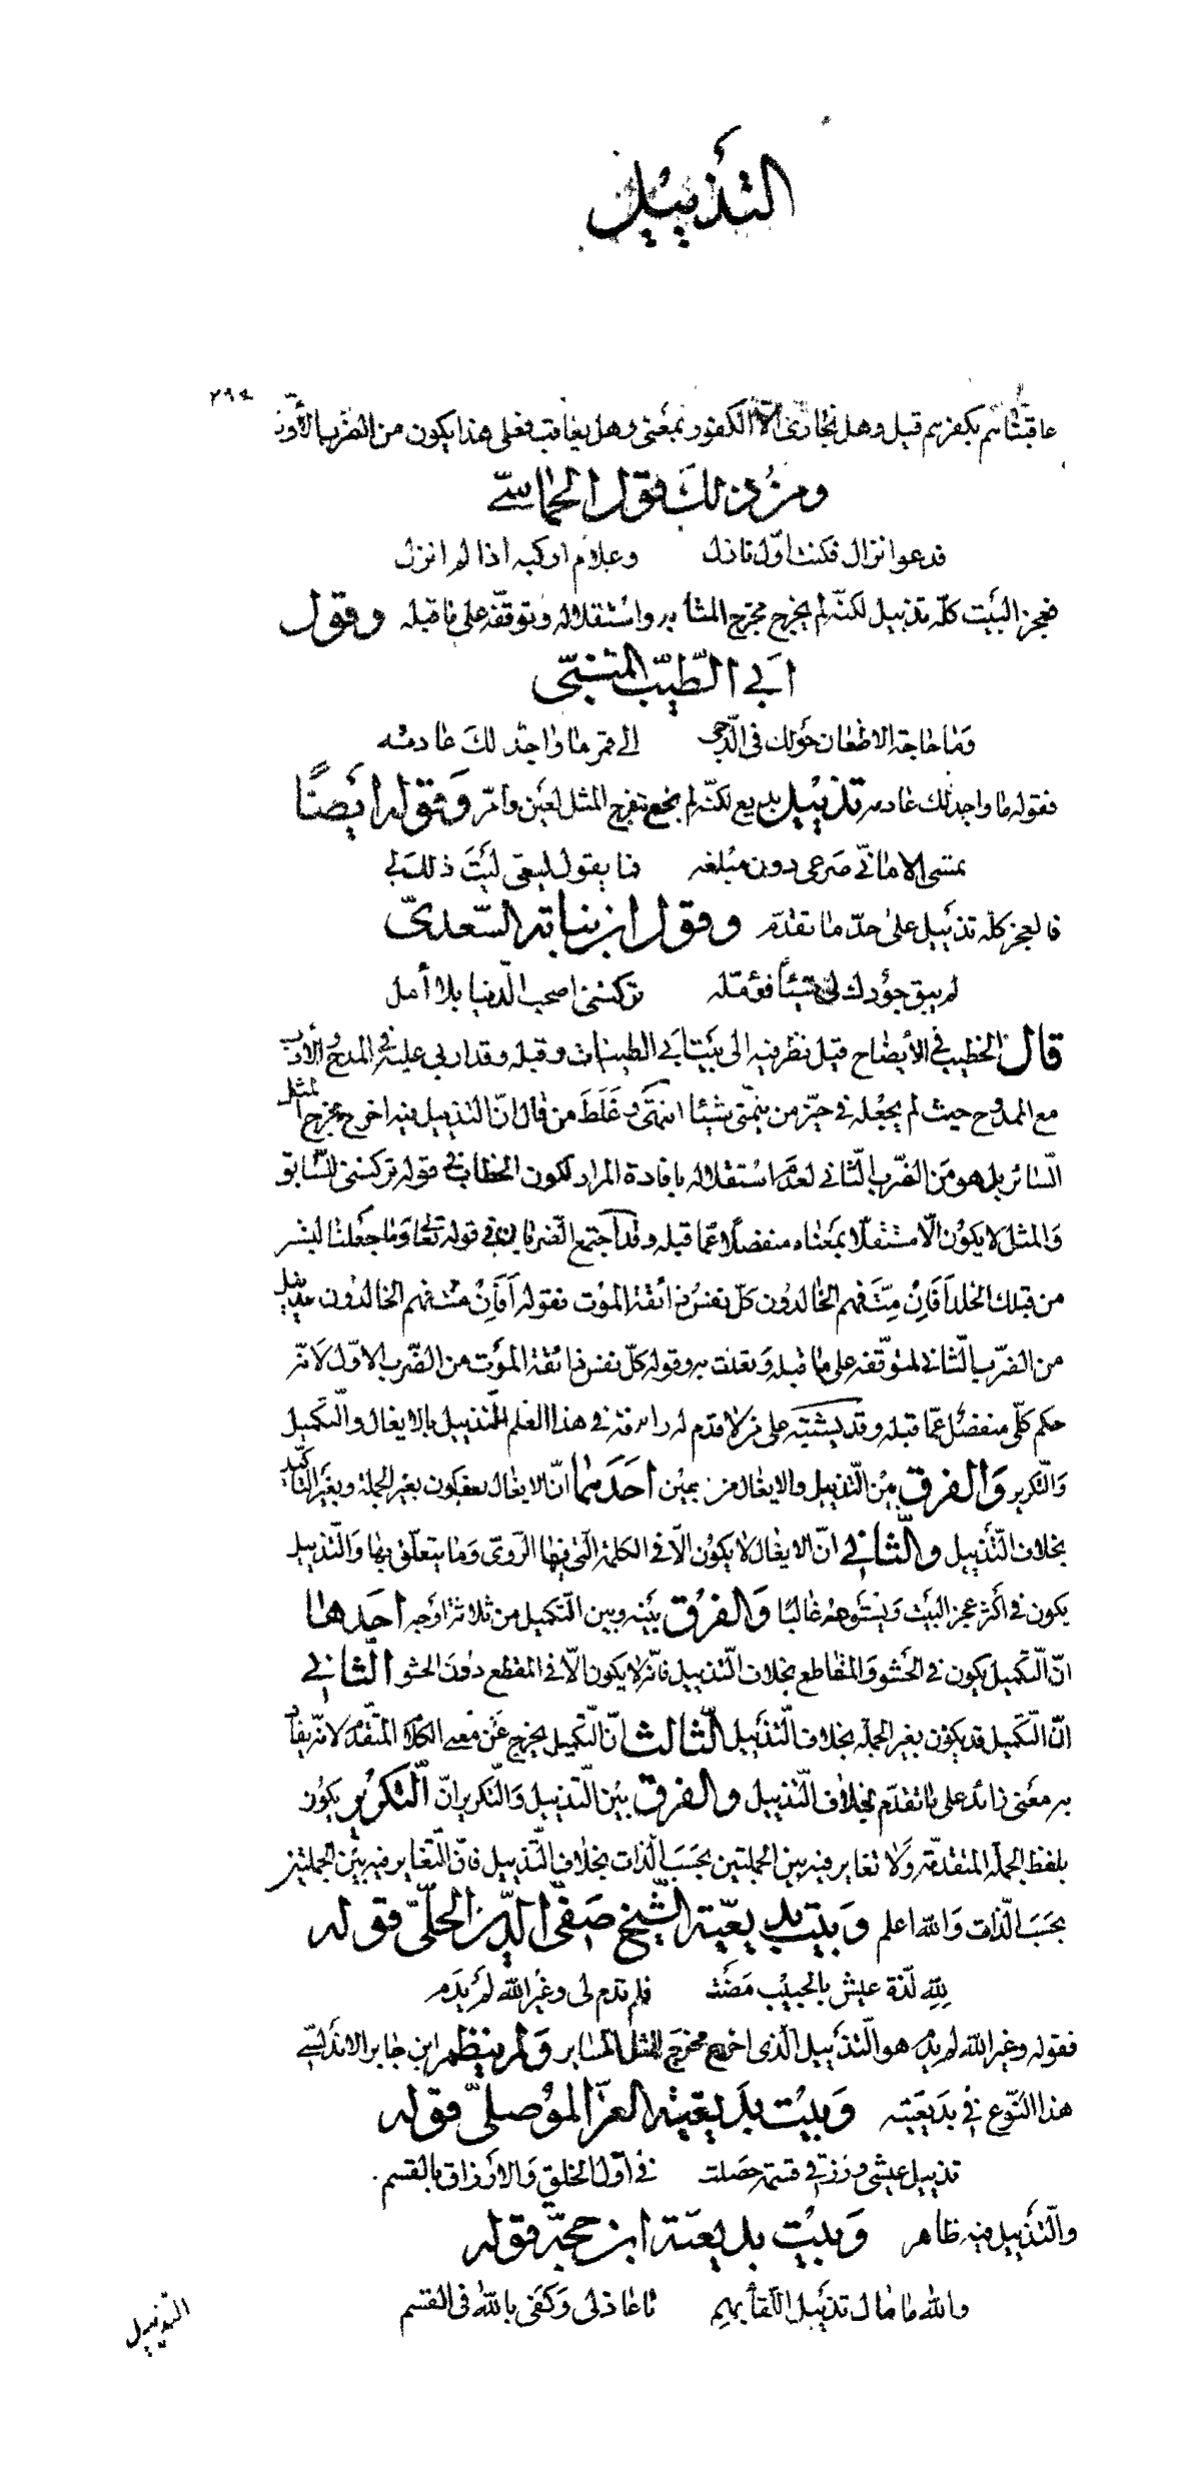 التذييل
٢٩٤
عاقبناهم بكفرهم قبل وهل نجازى الا الكفور بمعنى وهل يعاقب فعلى هذا يكون من الضرب الأول
ومن ذلك قول الحماسي
فدعوا نزال فكنت اول نازل وعلام اركبه اذا لم انزل
فعجز البيت كله تذييل لكنه لم يخرج مخرج المثل واستقلاله وتوقفه على ما قبله وقول
ابي الطيب المتنبي
وما حاجة الاظعان حولك في الدجى الى قمر ما واجد لك عادمه
فقوله ما واجد لك عادمه تذييل بديع لكنه لم يخرج مخرج المثل لعين ما مر وقوله ايضًا
تمسي الاماني صرعى دون مبلغه فما يقول لشي ليت ذلك لي
فالعجز كله تذييل على حد ما تقدم وقول ابن نباتة السعدي
لم يبق جودك لي شيئا أؤمله تركتني اصحب الدنيا بلا أمل
قال الخطيب في الأيضاح قيل نظر فيه الى بيت ابي الطيب وقد اربى عليه في المدح والأدب
مع الممدوح حيث لم يجعله في حيّز من يتمنى شيئا انتهى وغلط من قال انّ التذييل فيه اخرج مخرج المثل
السائر بل هو من الضرب الثاني لعدم استقلاله بافادة المراد لكون الخطاب في قوله تركتني للسابق
والمثل لا يكون الّا مستقلّا بمعناه منفصلا عمّا قبله وقد اجتمع الضربان في قوله تعالى وما جعلنا لبشر
من قبلك الخلد أفإن متّ فهم الخالدون كلّ نفس ذائقة الموت فقوله أفإن متّ فهم الخالدون تذييل
من الضرب الثاني لتوقفه على ما قبله وتعلقه به وقوله كلّ نفس ذائقة الموت من الضرب الاول لانّه
حكم كلّي منفصل عمّا قبله وقد يشتبه على من لا قدم له راسخة في هذا العلم التذييل بالايغال والتكميل
والتكرير والفرق بين التذييل والايغال من وجهين احدهما انّ الايغال قد يكون بغير الجملة وبغير التأكيد
بخلاف التذييل والثاني انّ الايغال لا يكون الّا في الكلمة التي فيها الروى وما يتعلق بها والتذييل
يكون في اكثر عجز البيت ويستوعبه غالبًا والفرق بينه وبين التكميل من ثلاثة اوجه احدها
انّ التكميل يكون في الحشو والمقاطع بخلاف التذييل فانّه لا يكون الّا في المقطع دون الحشو الثاني
انّ التكميل قد يكون بغير الجملة بخلاف التذييل الثالث انّ التكميل يخرج عن معنى الكلام المتقدّم لانّه يفاد
به معنى زائد على ما تقدم بخلاف التذييل والفرق بين التذييل والتكرير انّ التكرير يكون
بلفظ الجملة المتقدمة ولا تغاير فيه بين الجملتين بحسب الذات بخلاف التذييل فانّ التغاير فيه بين الجملتين
بحسب الذات والله اعلم وبيت بديعيّة الشيخ صفي الدين الحلي قوله
لله لذة عيش بالحبيب مضت فلم تدم لى وغير الله لم يدم
فقوله وغير الله لم يدم هو التذييل الذى اخرج مخرج المثل السابر ولم ينظم ابن جابر الاندلسي
هذا النوع في بديعيته وبيت بديعيّة العز الموصلي قوله
تذييل عيشي ورزقي قسمة حصلت في اول الخلق والارزاق بالقسم
والتذييل فيه ظاهر وبيت بديعيّة ابن حجة قوله
والله ما طال تذييل اللقا بهم يا عاذلى وكفى بالله في القسم
التذييل